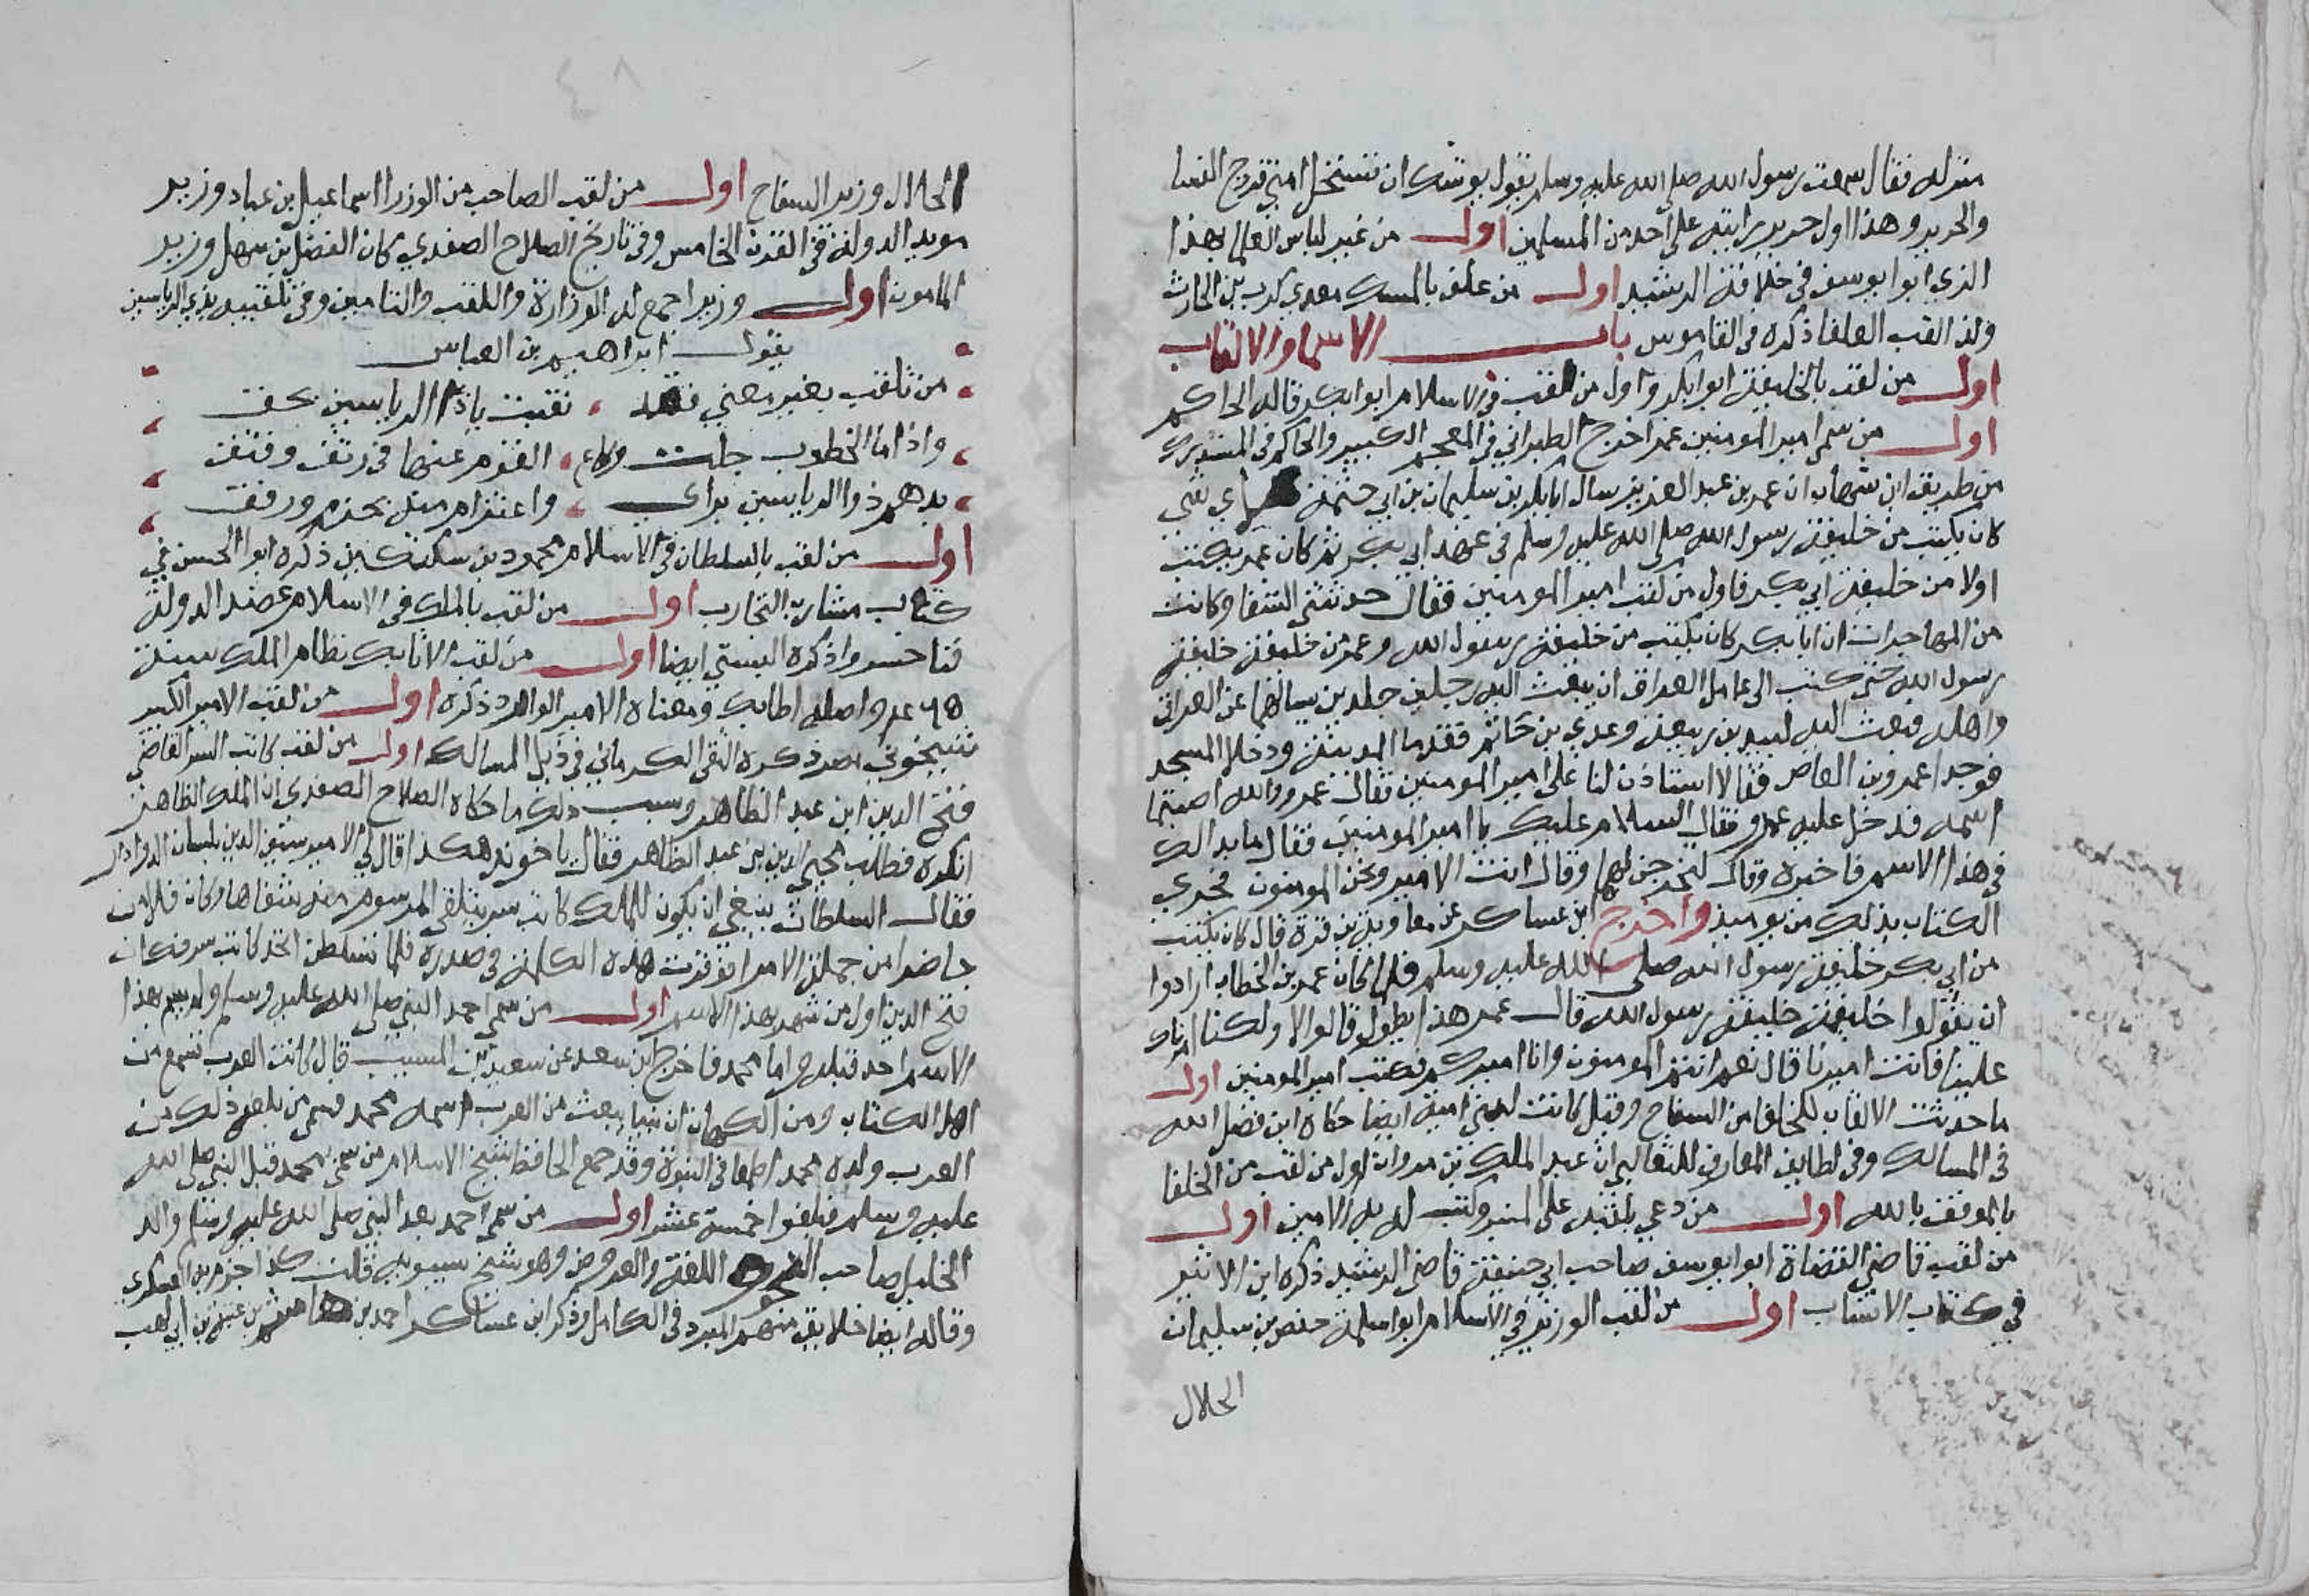 منزله فقال سمعت رسول الله صلى الله عليه وسلم يقول يوشك ان تستحل امتي فروج النسا
والحرير وهذا اول حرير رايته على احد من المسلمين اول من غير لباس العلما بهذا
الزي ابوا يوسف في خلافة الرشيد اول من علف بالمسك معدي كرب بن الحارث
ولذا لقب العلفا ذكره في القاموس باب الاسما والالقاب
اول من لقب بالخليفة ابوا بكر واول من لقب في الاسلام ابوا بكر قاله الحاكم
اول من سمى امير المومنين عمر اخرج الطبراني في المعجم الكبير والحاكم في المستدرك
من طريق ابن شهاب ان عمر بن عبد العزيز سال ابا بكر بن سليمان بن ابي حثمة لاي شي
كان يكتب من خليفة رسول الله صلى الله عليه وسلم في عهد ابي بكر ثم كان عمر يكتب
اولا من خليفة ابي بكر فاول من كتب امير المومنين فقال حدثتني الشفا وكانت
من المهاجرات ان ابا بكر كان يكتب من خليفة رسول الله وعمر من خليفة خليفة
رسول الله حتى كتب الى عامل العراق ان يبعث اليه رجلين جلدين يسالهما عن العراق
واهله فبعث اليه لبيد بن ربيعة وعدي بن حاتم فقدما المدينة ودخلا المسجد
فوجدا عمرو بن العاص فقالا استاذن لنا على امير المومنين فقال عمرو والله اصبتما
اسمه فدخل عليه عمرو فقال السلام عليك يا امير المومنين فقال ما بدا لك
في هذا الاسم فاخبره وقال انت الامير ونحن المومنون فجري
الكتاب بذلك من يوميذ واخرج ابن عساكر عن معاوية بن قرة قال كان يكتب
من ابي بكر خليفة رسول الله صلى الله عليه وسلم فلما كان عمر بن الخطاب ارادوا
ان يقولوا خليفة خليفة رسول الله قال عمر هذا يطول قالوا لا ولكنا امرناك
علينا فانت اميرنا قال نعم انتم المومنون وانا اميركم فكتب امير المومنين اول
ما حدثت الالقاب للخلفا من السفاح وقيل كانت لبني امية ايضا حكاه ابن فضل الله
في المسالك وفي لطايف المعارف للثعالبي ان عبد الملك بن مروان اول من لقب من الخلفا
بالموفق بالله اول من دعي بلقبه على المنبر وكتب له به الامين اول
من لقب قاضي القضاة ابوا يوسف صاحب ابي حنيفة قاضي الرشيد ذكره ابن الاثير
في كتاب الانساب اول من لقب الوزير في الاسلام ابوا سلمة حفص بن سليمان
الخلال
الخلال وزير السفاح اول من لقب الصاحب من الوزرا اسماعيل بن عباد وزير
مويد الدولة في القرن الخامس وفي تاريخ الصلاح الصفدي كان الفضل بن سهل وزير
المامون اول وزير اجتمع له الوزارة واللقب والتامير وفي تلقيبه بذي الرياستين
يقول ابراهيم بن العباس
من تلقب بغير معني فقد تلقبت ياذا الرياستين بحق
واذا ما الخطوب جلت القوم عنها في رتق وفتق
بدهم ذوا الرياستين براي واعتزام منه بحزم ورفق
اول من لقب بالسلطان في الاسلام محمود بن سبكتكين ذكره ابوا الحسن في
كتاب مشارب التجارب اول من لقب بالملك في الاسلام عضد الدولة
فنا خسروا ذكره البستي ايضا اول من لقب الاتابك نظام الملك سنة
٤٦٥ واصله اطابك ومعناه الامير الوالد ذكره اول من لقب الامير الكبير
شيخون بمصر ذكره التقي الكرماني في ذيل المسالك اول من لقب كاتب السر القاضي
فتح الدين ابن عبد الظاهر وسبب ذلك ما حكاه الصلاح الصفدي ان الملك الظاهر
انكره فطلب محيي الدين بن عبد الظاهر فقال ياخوند هكذا قال لي الامير سيف الدين بلبان الدوادار
فقال السلطان ينبغي ان يكون للملك كاتب سر يتلقى المرسوم منه شفاها وكان قلاون
حاضرا من جملة الامرا فوقرت هذه الكلمة في صدره فلما تسلطن اتخذ كاتب سر فكان
فتح الدين اول من شهر بهذا الاسم اول من سمي احمد النبي صلى الله عليه وسلم ولم يسم بهذا
الاسم احد قبله واما محمد فاخرج ابن سعد عن سعيد بن المسيب قال كانت العرب تسمع من
اهل الكتاب ومن الكهان ان نبيا يبعث من العرب اسمه محمد فسمى من بلغه ذلك من
العرب ولده محمد اطمعا في النبوة وقد جمع الحافظ شيخ الاسلام من سمي محمد قبل النبي صلى الله
عليه وسلم فبلغوا خمسة عشر اول من سمي احمد بعد النبي صلى الله عليه وسلم والد
الخليل صاحب النحو اللغة والعروض وهو شيخ سيبويه قلت كذا جزم به العسكري
وقاله ايضا خلايق منهم المبرد في الكامل وذكر ابن عساكر احمد بن عتبة بن ابي لهب